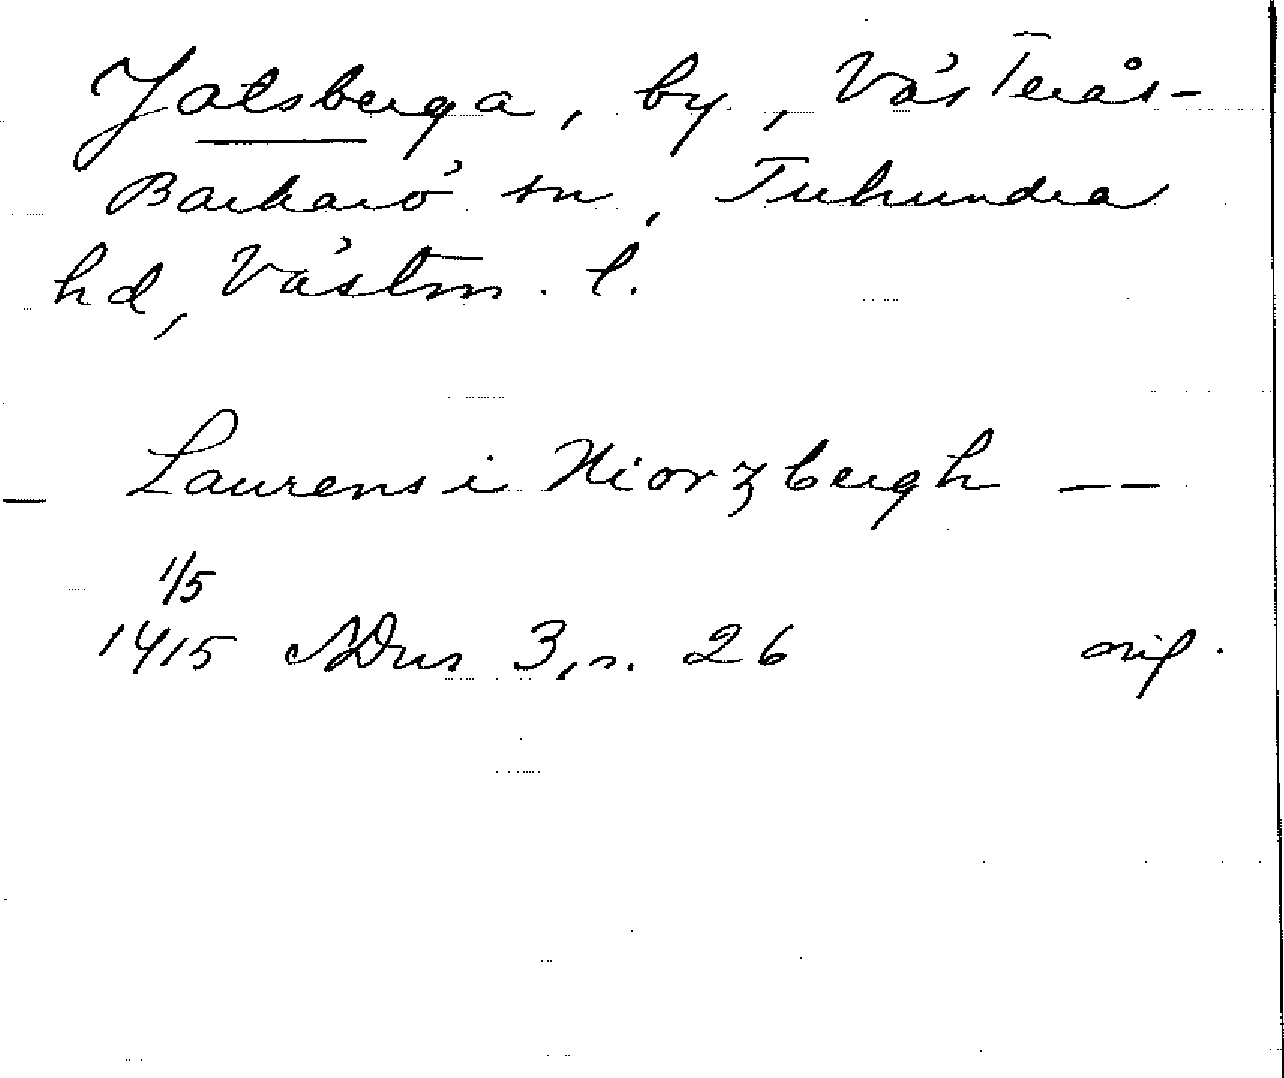 Jotsberga, by, Västerås-
Barkarö sn, Tuhundra
hd, Västm. l.
— Laurens i Niorzbergh — —
1/5
1415 SDns 3, s. 26